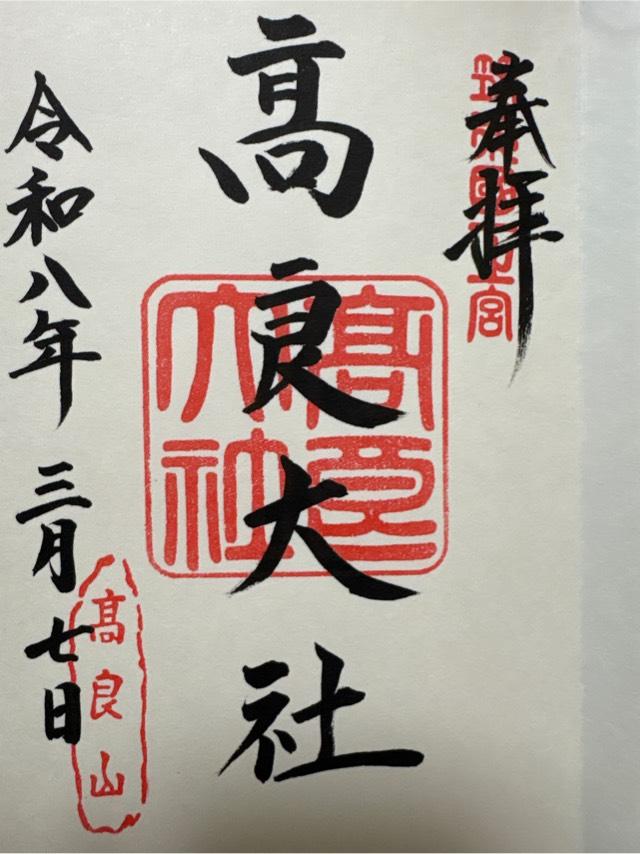 奉拝
筑國宮
髙良大社
髙良
大社
令和八年三月七日
髙良山